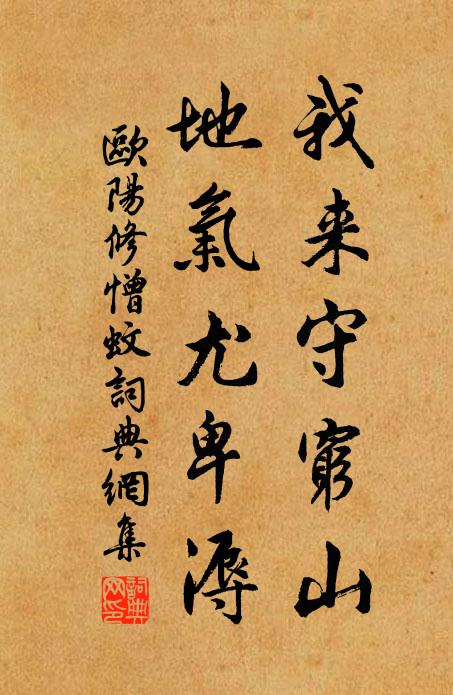 我来守窮山
地氣尤卑溽
歐陽修憎蚊詞典網集
詞典网印